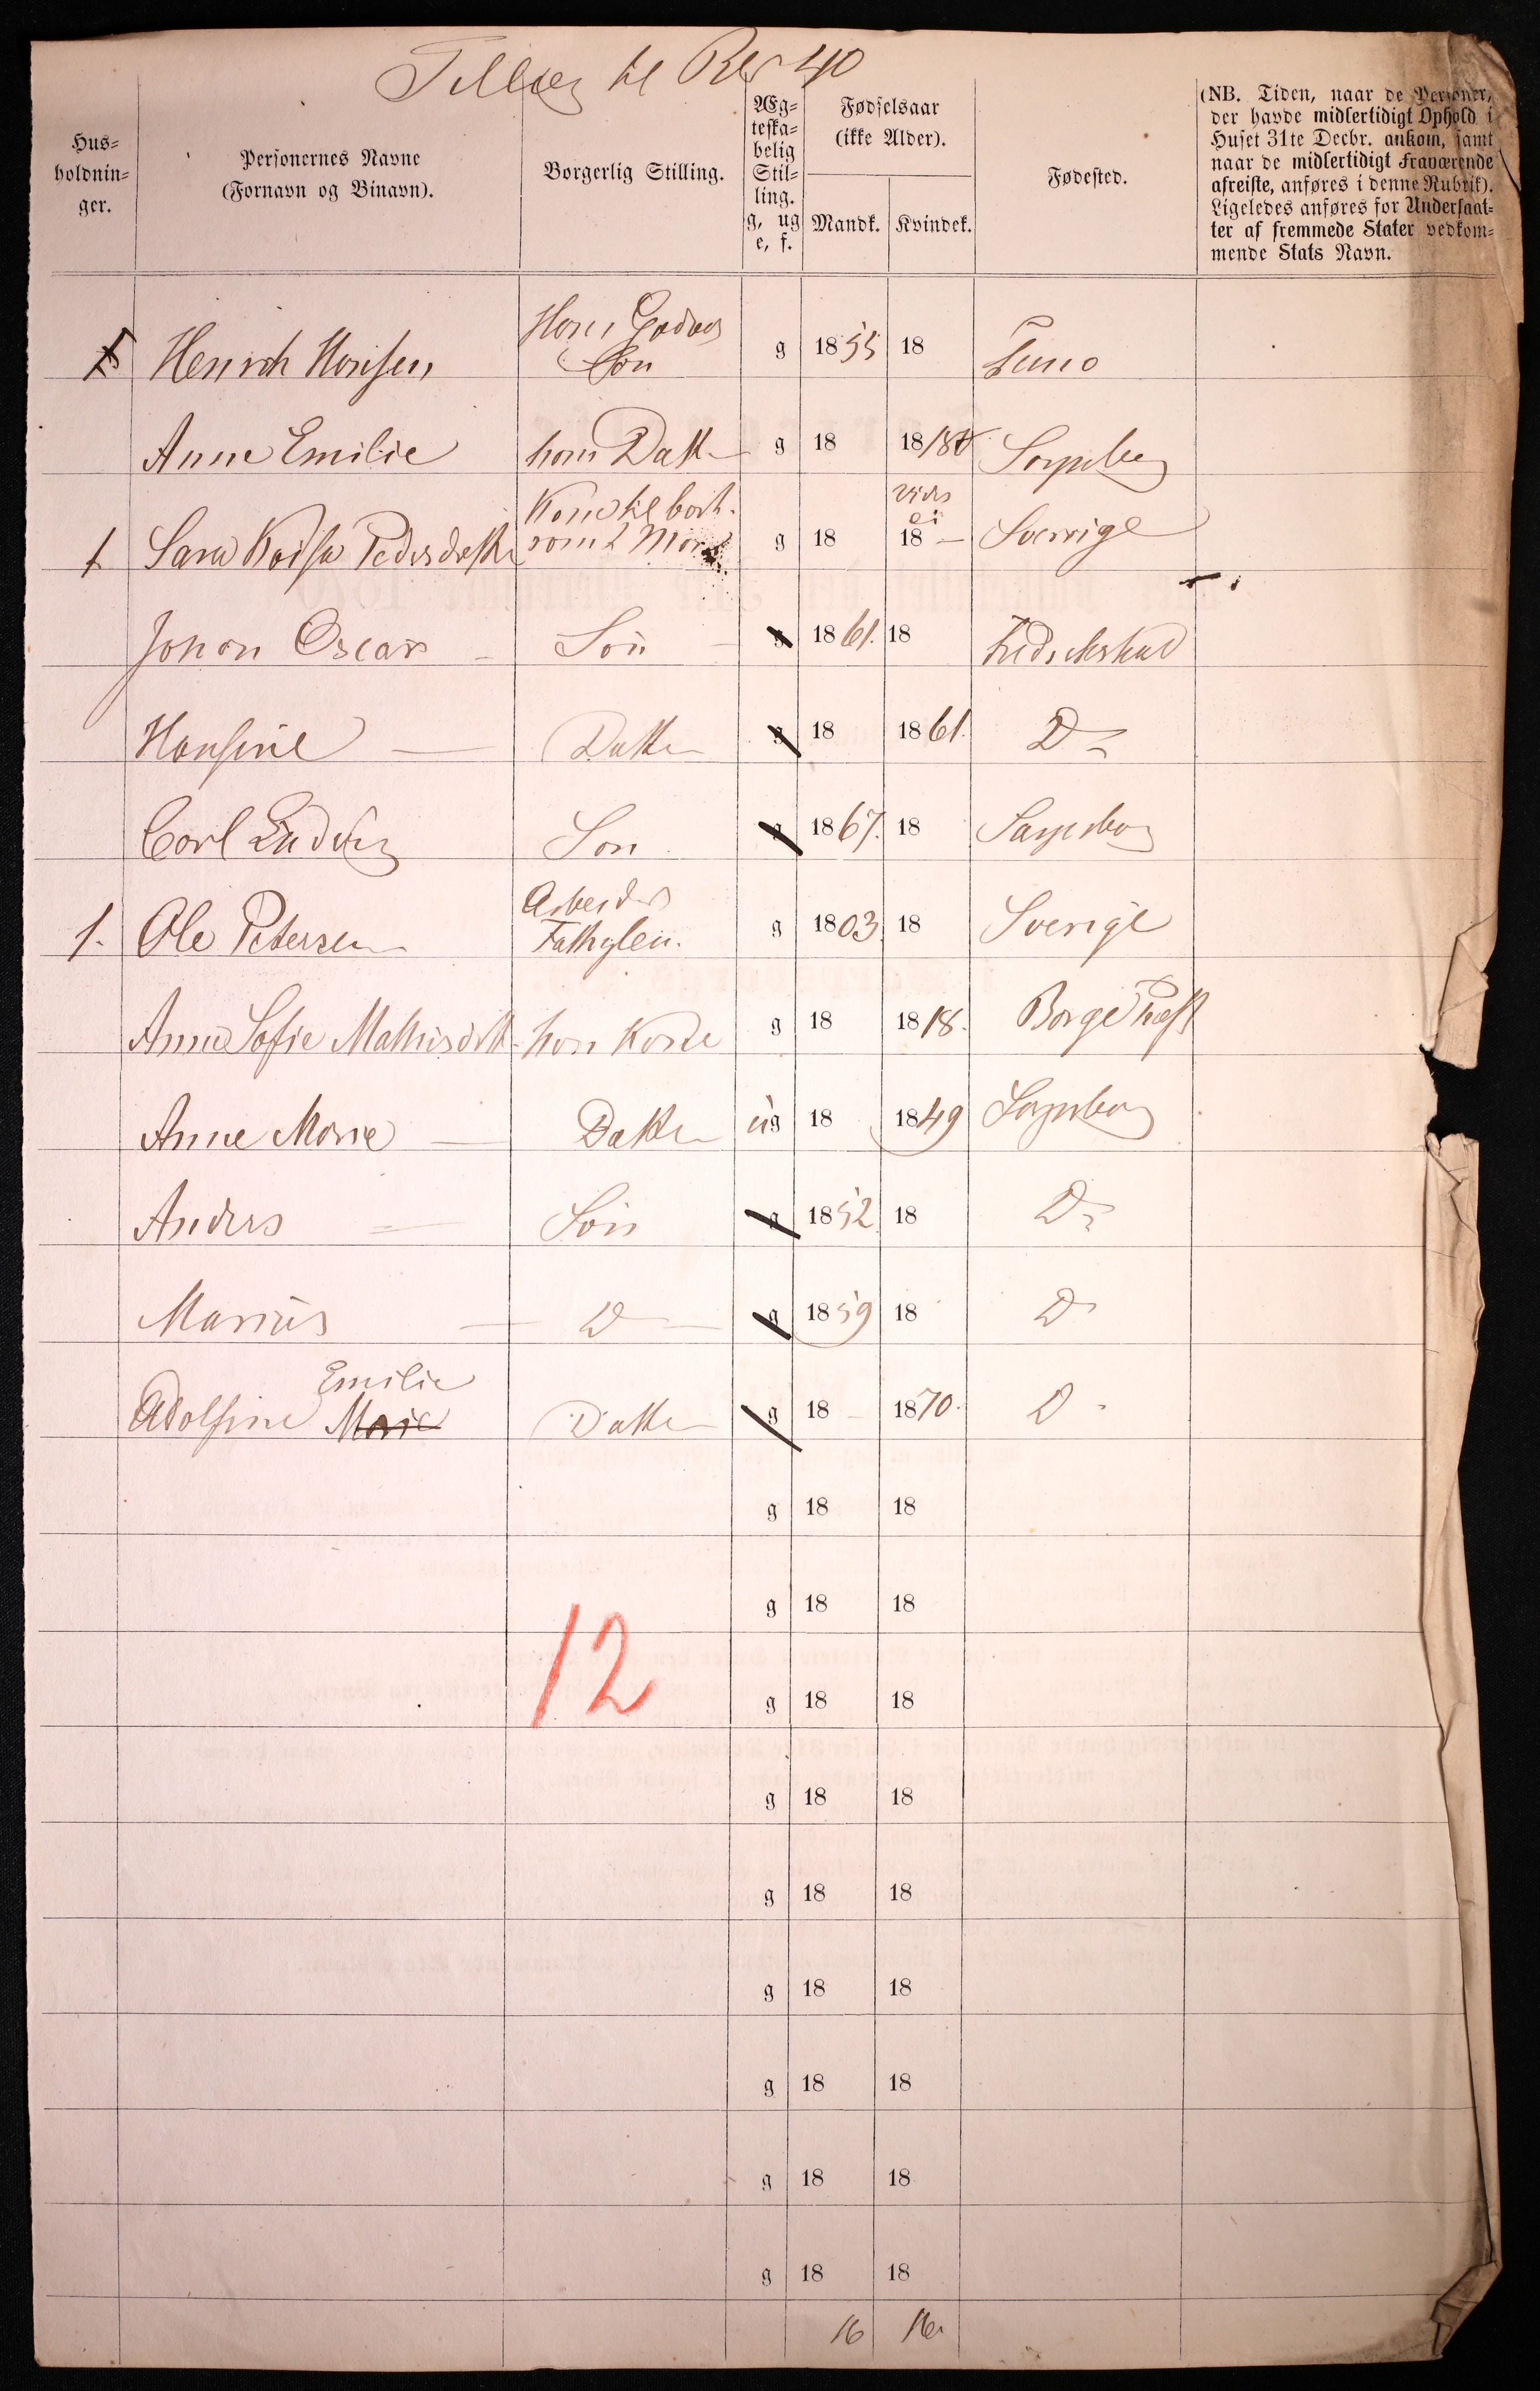 Tillæg til No 40
Hus-
holdnin-
ger.
Personernes Navne
(Fornavn og Binavn).
Borgerlig Stilling.
Æg-
teska-
belig
Stil-
ling.
g, ug
e, f.
Fødselsaar
(ikke Alder).
Mandk. Kvindek.
Fødested.
(NB. Tiden, naar de Personer,
der havde midlertidigt Ophold i
Huset 31te Decbr. ankom, samt
naar de midlertidigt Fraværende
afreiste, anføres i denne Rubrik).
Ligeledes anføres for Undersaat-
ter af fremmede Stater vedkom-
mende Stats Navn.
Henrich Hansen Hans Søn g 1855 18
Anne Emilie hans Datt g 18 18 Sarpsborg
1 Sara Kaisa Pedersdatter Kone til bort- g 18 vides ei 18 – Sverrige
Johan Oscar – Søn – g 1861. 18 Fredrikshald
Hansine – Datter g 18 1861. Do
Carl Ludvig Søn g 1867. 18 Sarpsborg
1. Ole Petersen Arbeider Fattiglem. g 1803. 18 Sverige
Anne Sofie Mathisdatt- hans Kone g 18 1818. Borge Præst
Anne Marie – Datter ug 18 1849 Sarpsborg
Anders – Søn g 1852 18 Do
Marius – D – g 1859 18 Do
Adolfine Marie Emilie Datter g 18 1870. D
g 18 18
g 18 18
12
g 18 18
g 18 18
g 18 18
g 18 18
g 18 18
g 18 18
g 18 18
16 16